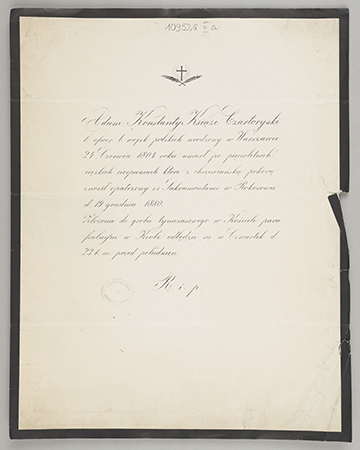 109526 II a
Adam Konstanty Książe Czartoryski
b. oficer b. wojsk polskich urodzony w Warszawie
24 Czerwca 1804 roku umarł po pięcioletnich
ciężkich cierpieniach które z chrześciańską pokorą
znosił opatrzony ss. Sakramentami w Rokosowie
d. 19 grudnia 1880.
Złożenie do grobu tymczasowego w Kościele para
fialnym w Krobi odbędzie się w Czwartek d.
23 b. m. przed południem.
R. i. p.